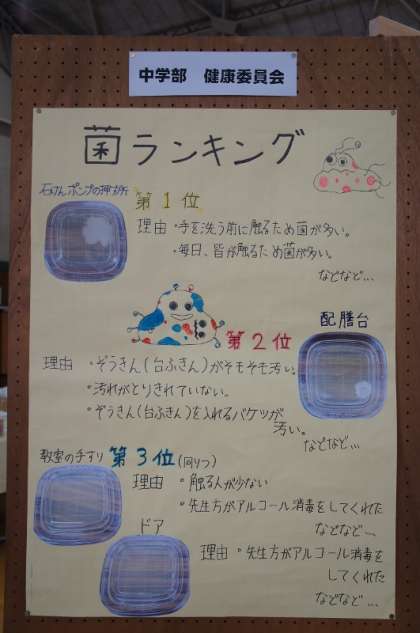 中学部　健康委員会
菌ランキング
石けんポンプの押す所
第1位
理由・手を洗う前に触るため菌が多い。
・毎日、皆が触るため菌が多い。
などなど…
配膳台
第2位
理由・ぞうきん(台ふきん)がそもそも汚い。
・汚れがとりきれていない。
・ぞうきん(台ふきん)を入れるバケツが
汚い。
などなど…
教室の手すり 第3位(同りつ)
理由・触る人が少ない
・先生方がアルコール消毒をしてくれた
などなど…
ドア
理由・先生方がアルコール消毒を
してくれた
などなど…